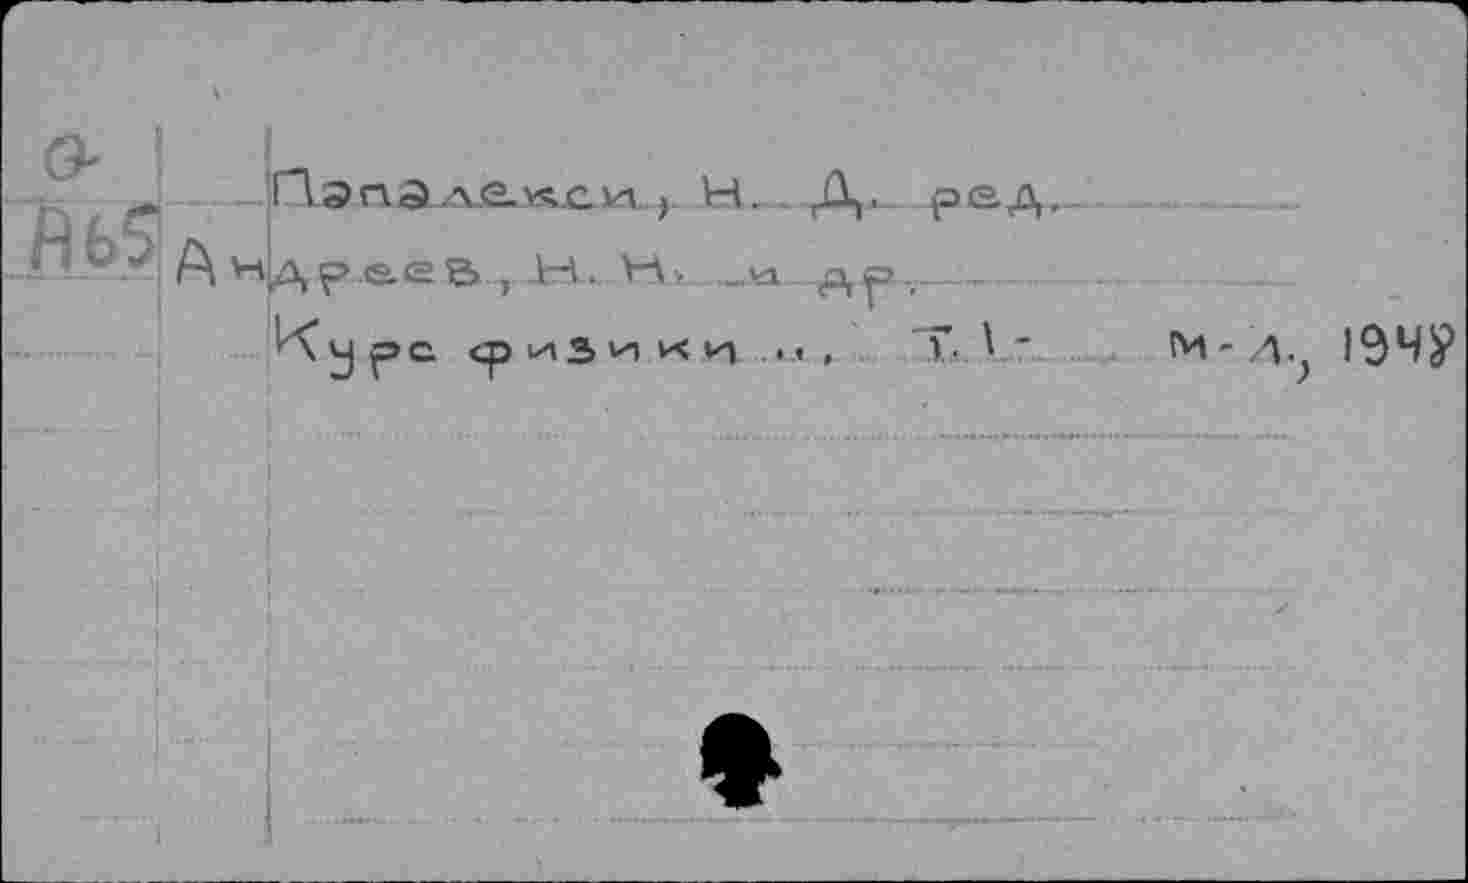 А65
Папалекси, Н. Д. ред.
Андреев, Н. Н. и др.
Курс физики ... Т. 1- М-Л., 1948